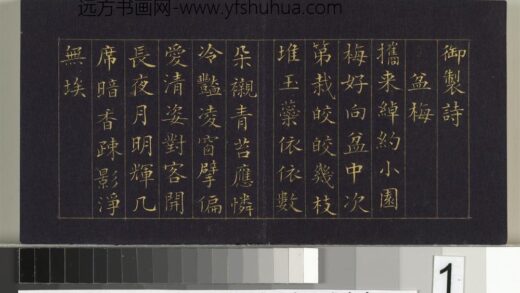 远方书画网-www.yfshuhua.com
御製詩
盆梅
攜来綽約小園
梅好向盆中次
第栽皎皎幾枝
堆玉蘂依依數
朵襯青苔應憐
冷豔凌窗擘偏
愛清姿對客開
長夜月明輝几
席暗香踈影淨
無埃
1